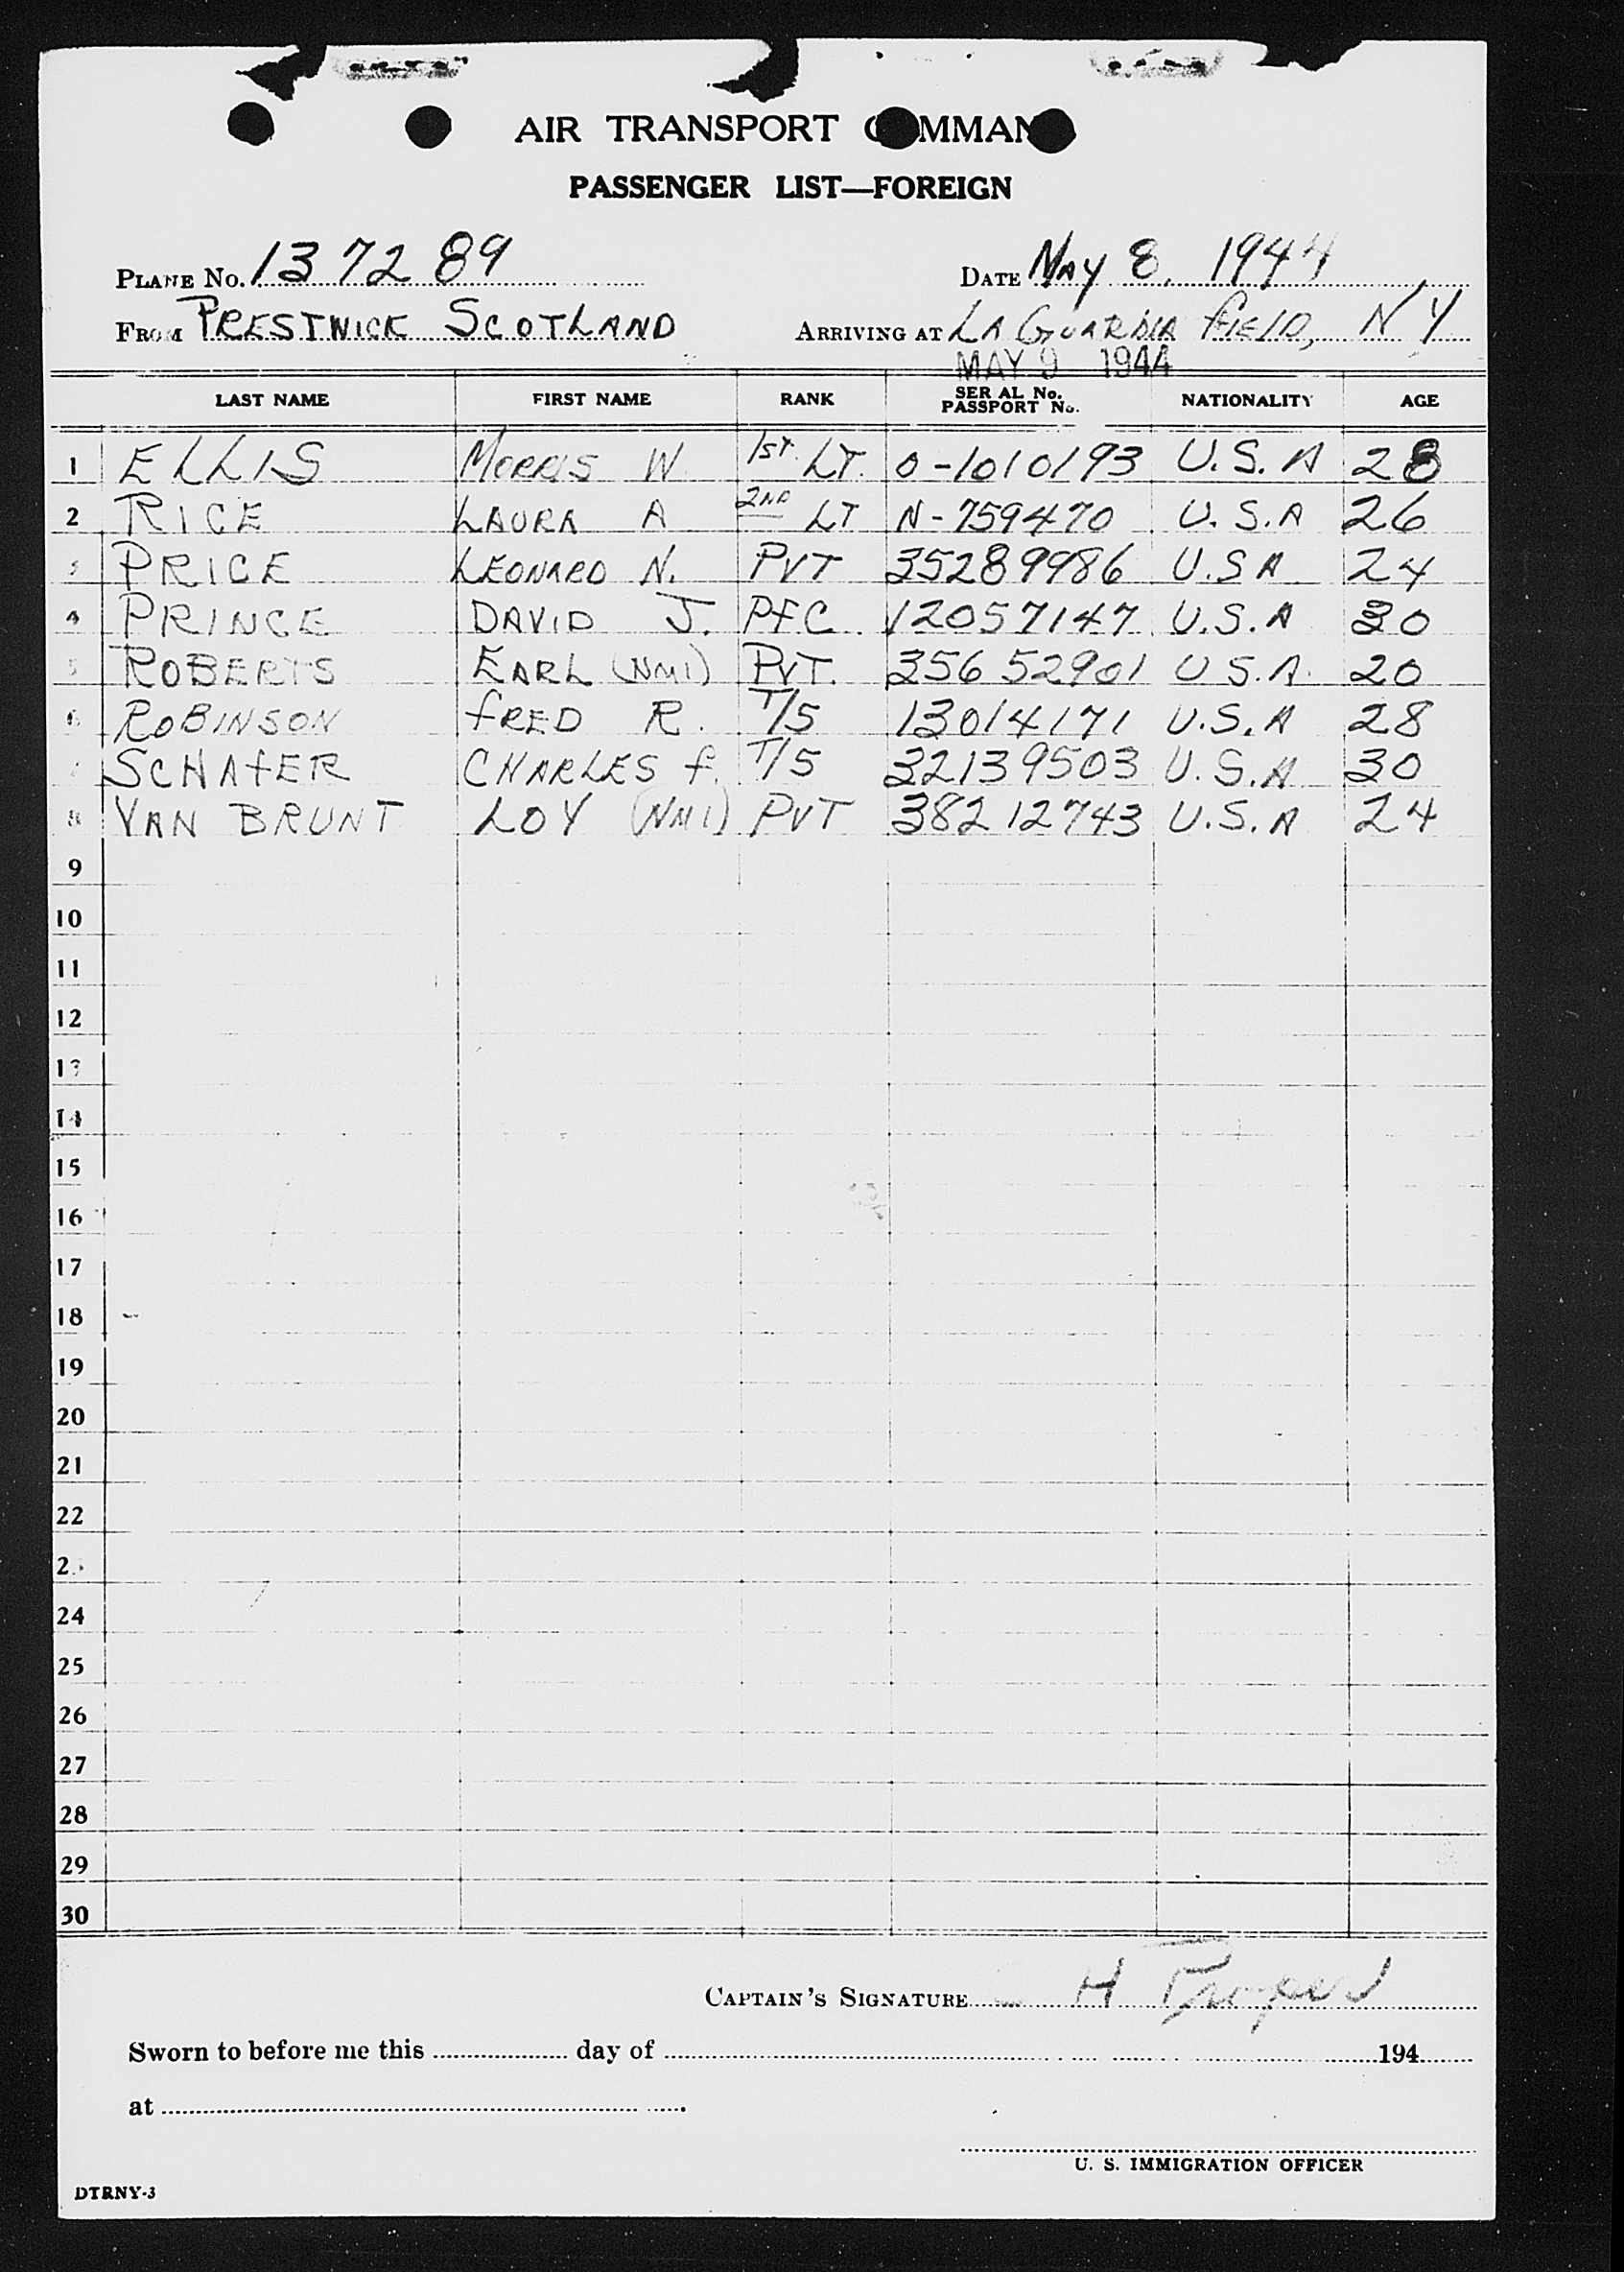 AIR TRANSPORT COMMAND
PASSENGER LIST—FOREIGN
PLANE No. 13 72 89 DATE MAY 8, 1944
FROM PRESTWICK SCOTLAND ARRIVING AT LA GUARDIA FIELD, N Y
MAY 9 1944
LAST NAME FIRST NAME RANK SERIAL No. PASSPORT No. NATIONALITY AGE
1 ELLIS MORRIS W. 1ST. LT. O-1010193 U.S.A 28
2 RICE LAURA A 2ND LT N-759470 U.S.A 26
3 PRICE LEONARD N. PVT 35289986 U.S A 24
4 PRINCE DAVID J. PFC 12057147 U.S.A 30
5 ROBERTS EARL (NMI) PVT. 356 52901 U S.A. 20
6 ROBINSON FRED R. T/5 13014171 U.S.A 28
7 SCHAFER CHARLES F. T/5 32139503 U.S.A 30
8 VAN BRUNT LOY (NMI) PVT 38212743 U.S.A 24
9
10
11
12
13
14
15
16
17
18
19
20
21
22
23
24
25
26
27
28
29
30
CAPTAIN'S SIGNATURE H
Sworn to before me this day of 194
at
U. S. IMMIGRATION OFFICER
DTRNY-3